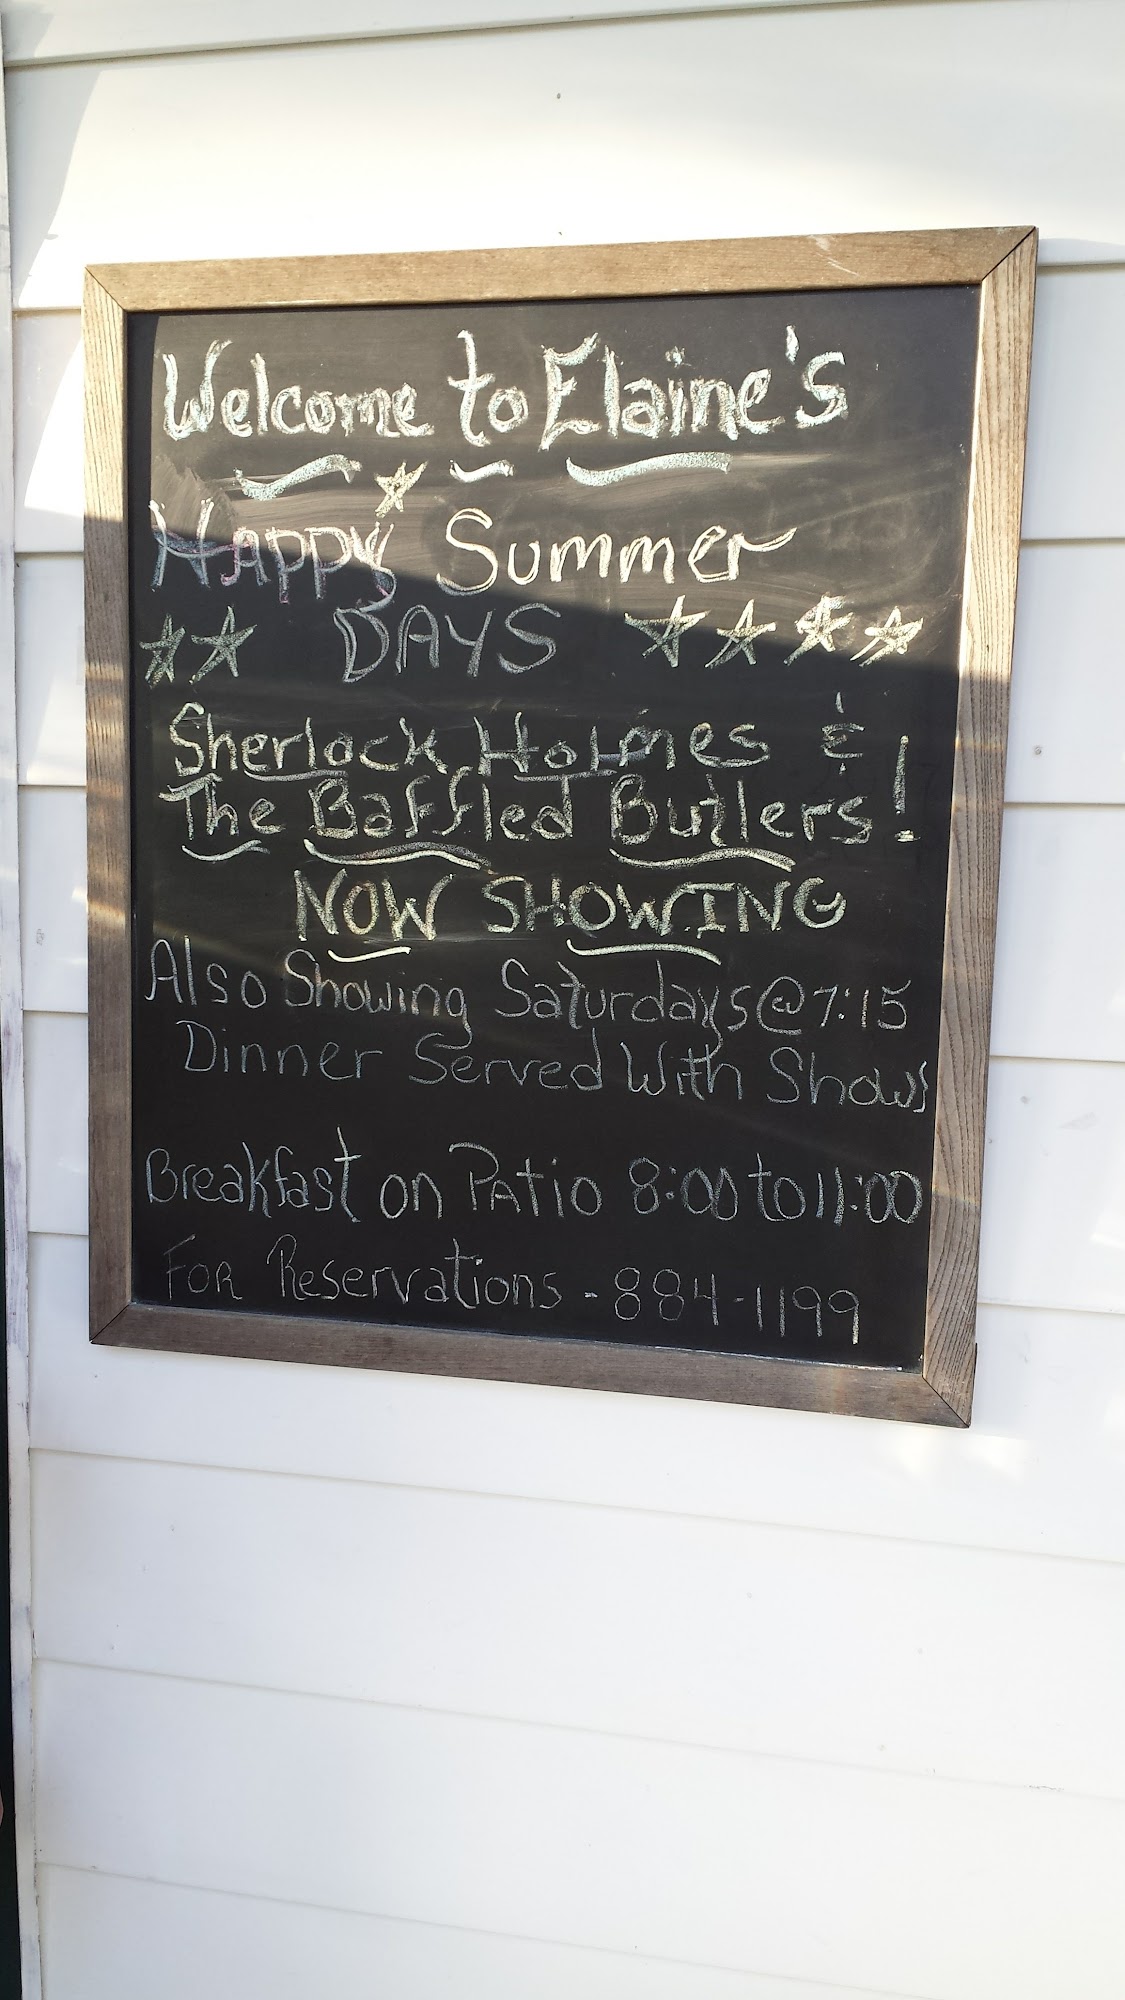 Welcome to Elaine's
Happy Summer
DAYS
Sherlock Holmes &
The Baffled Butlers!
NOW SHOWING
Also Showing Saturdays @ 7:15
Dinner Served With Shows
Breakfast on Patio 8:00 to 11:00
For Reservations - 884-1199